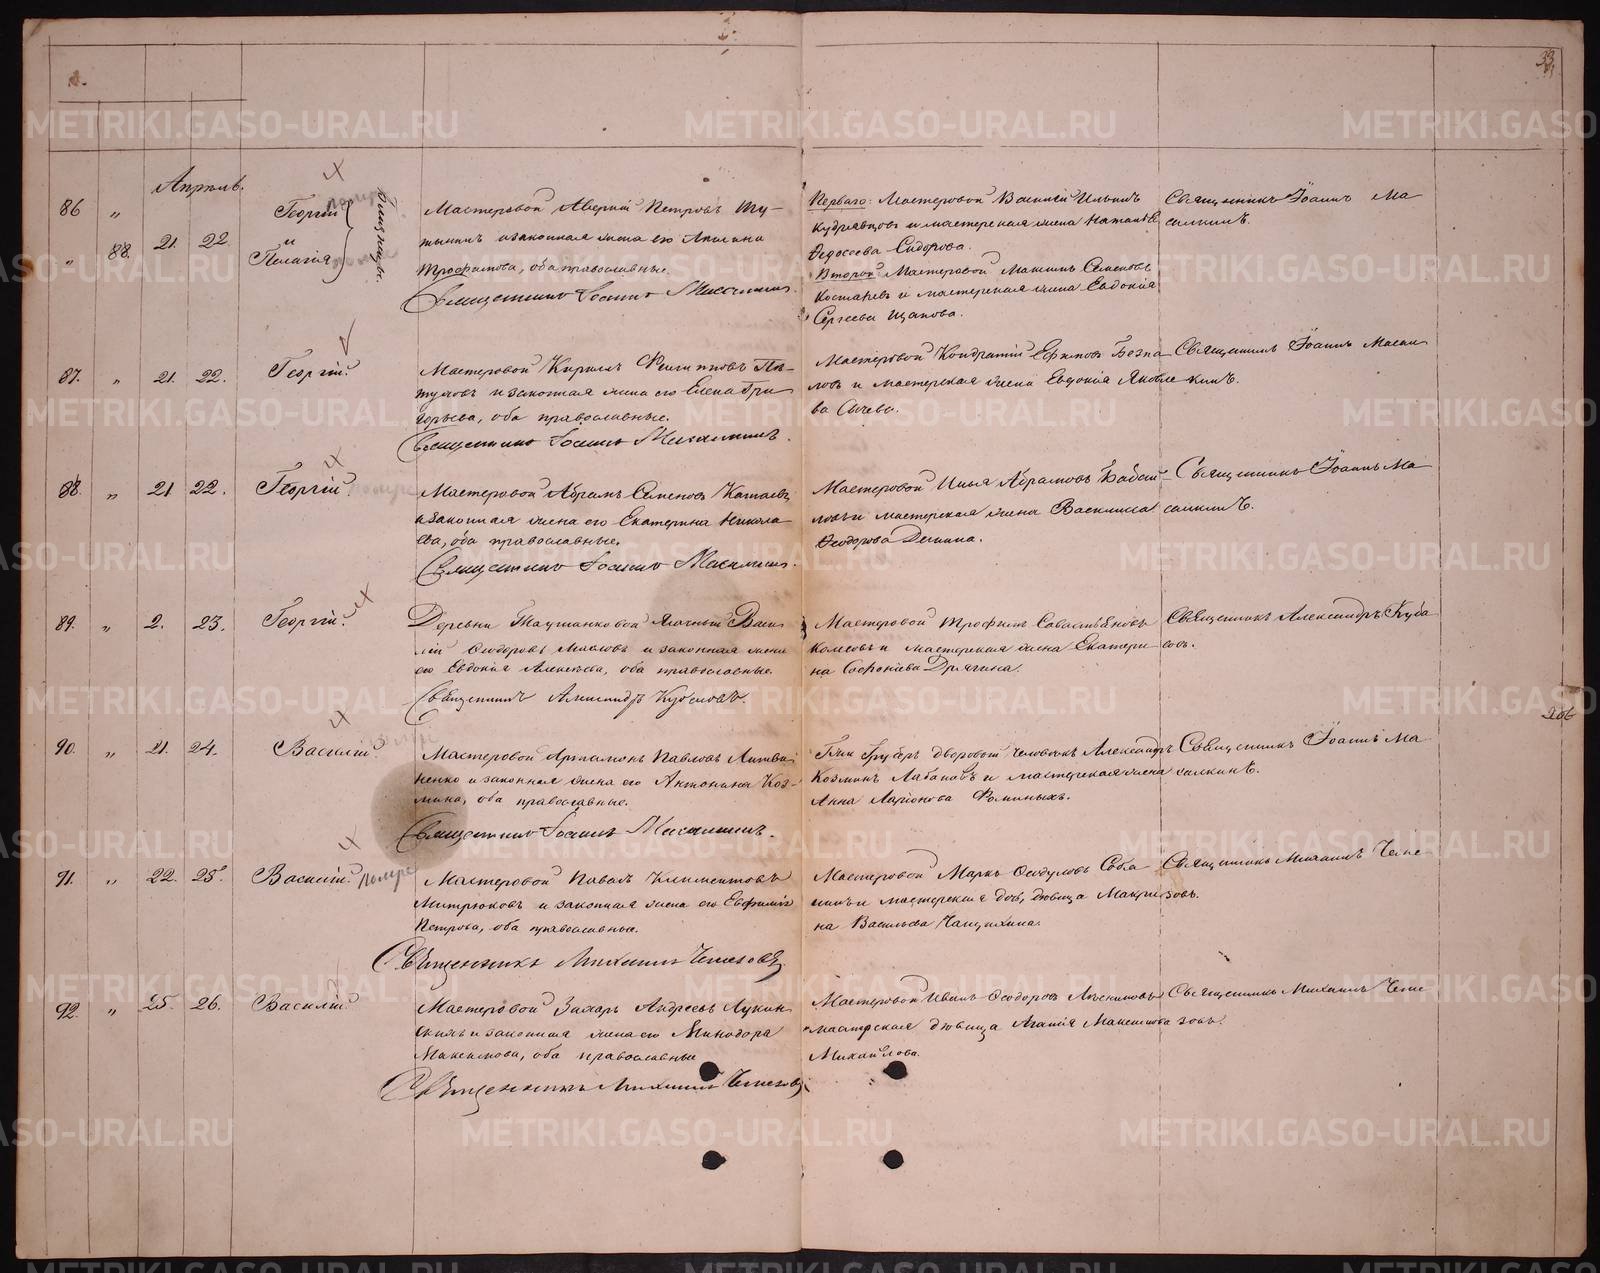 33
Апрѣль.
86 " 21. 22. Георгій
" 88. и Пелагія
Близнецы.
Мастеровой Аверкій Петровъ
и законная жена его
Трофимова, оба православные.
Священникъ Іоаннъ
Перваго: Мастеровой Василій Ильинъ
Кудрявцовъ и мастерская жена Наталья
Федосеева Сидорова.
Второй Мастеровой Максимъ Семеновъ
и мастерская жена Евдокія
Сергеева Щапова.
Священникъ Іоаннъ
87. " 21. 22. Георгій.
Мастеровой Кирилъ Филиповъ Па-
и законная жена его Елена Гри
горьева, оба православные.
Священникъ Іоаннъ
Мастеровой Кондратій Ефимовъ Безпа
ловъ и мастерская жена Евдокія Яковле
ва Сычева.
Священникъ Іоаннъ
88. " 21 22. Георгій. помре
Мастеровой Абрамъ Семеновъ Катаевъ
и законная жена его Екатерина Никола
ева, оба православные.
Священникъ Іоаннъ
Мастеровой Илья Абрамовъ Бабай
ловъ и мастерская жена Василиса
Феодорова Демина.
Священникъ Іоаннъ
89. " 2. 23. Георгій.
Деревни Васи
лій Феодоровъ и законная жена
его Евдокія Алексѣева, оба православные.
Священникъ Александръ Кубасовъ.
Мастеровой Трофимъ Савастьяновъ
Колесовъ и мастерская жена Екатери
на Софоніева Дрягина.
Священникъ Александръ Куба
совъ.
206
90. " 21. 24. Василій.
Мастеровой Артамонъ Павловъ Литви
ненко и законная жена его Антонина Коз-
мина, оба православные.
Священникъ Іоаннъ
дворовой человѣкъ Александръ
Козминъ Лабановъ и мастерская жена
Анна Ларіонова Фоминыхъ.
Священникъ Іоаннъ
91. " 22. 25. Василій. помре
Мастеровой Павелъ Климентовъ
Митрюковъ и законная жена его Евфимія
Петрова, оба православные.
Священникъ Михаилъ Чемезовъ
Мастеровой Маркъ Федуловъ Соба
нинъ и мастерская дочь, дѣвица Макри
на Васильева Чащихина.
Священникъ Михаилъ Чеме
зовъ.
92. " 25. 26. Василій.
Мастеровой Захаръ Андреевъ Лукин
скихъ и законная жена его Минодора
Максимова, оба православные
Священникъ Михаилъ Чемезовъ
Мастеровой Иванъ Феодоровъ
мастерская дѣвица Агапія Максимова
Михайлова.
Священникъ Михаилъ Чеме
зовъ.
METRIKI.GASO-URAL.RU